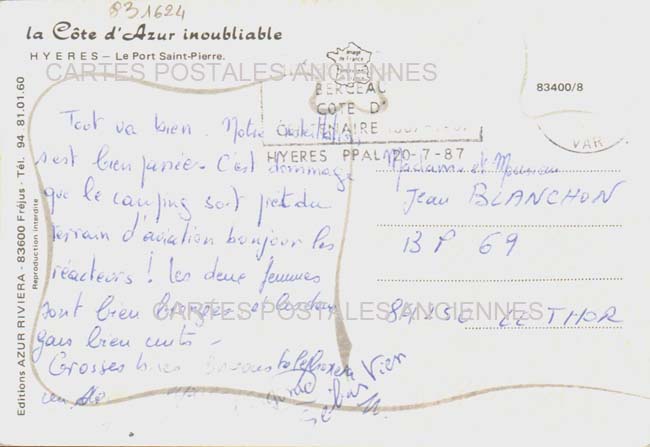 831624
la Côte d'Azur inoubliable
HYERES – Le Port Saint-Pierre.
CARTES POSTALES ANCIENNES
83400/8
image de France
BERCEAU
COTE D'
HYERES PPAL 20-7-87
VAR
Tout va bien. Notre
s'est bien passée. C'est dommage
que le camping soit près du
terrain d'aviation bonjour les
réacteurs ! Les deux femmes
sont bien bronzées et les deux
gars bien cuits -
Grosses bises
Madame et Monsieur
Jean BLANCHON
BP 69
84250 LE THOR
CARTES POSTALES ANCIENNES
Editions AZUR RIVIERA - 83600 Fréjus - Tél. 94 81.01.60
Reproduction interdite